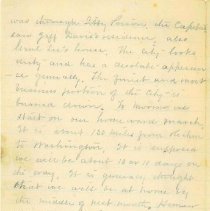 was through Libby Prison, the Capitol
saw Jeff Davis's residence, also
Genl Lee's house. The city looks
dusty and has a desolate appear-
ance generally. The finest and most
business portion of the city is
burned down. To morrow we
start on our home ward march.
It is about 120 miles from Richm
to Washington. It is supposed
we will be about 10 or 11 days on
the way. It is generally thought
that we will be at home by
the middle of next month. However